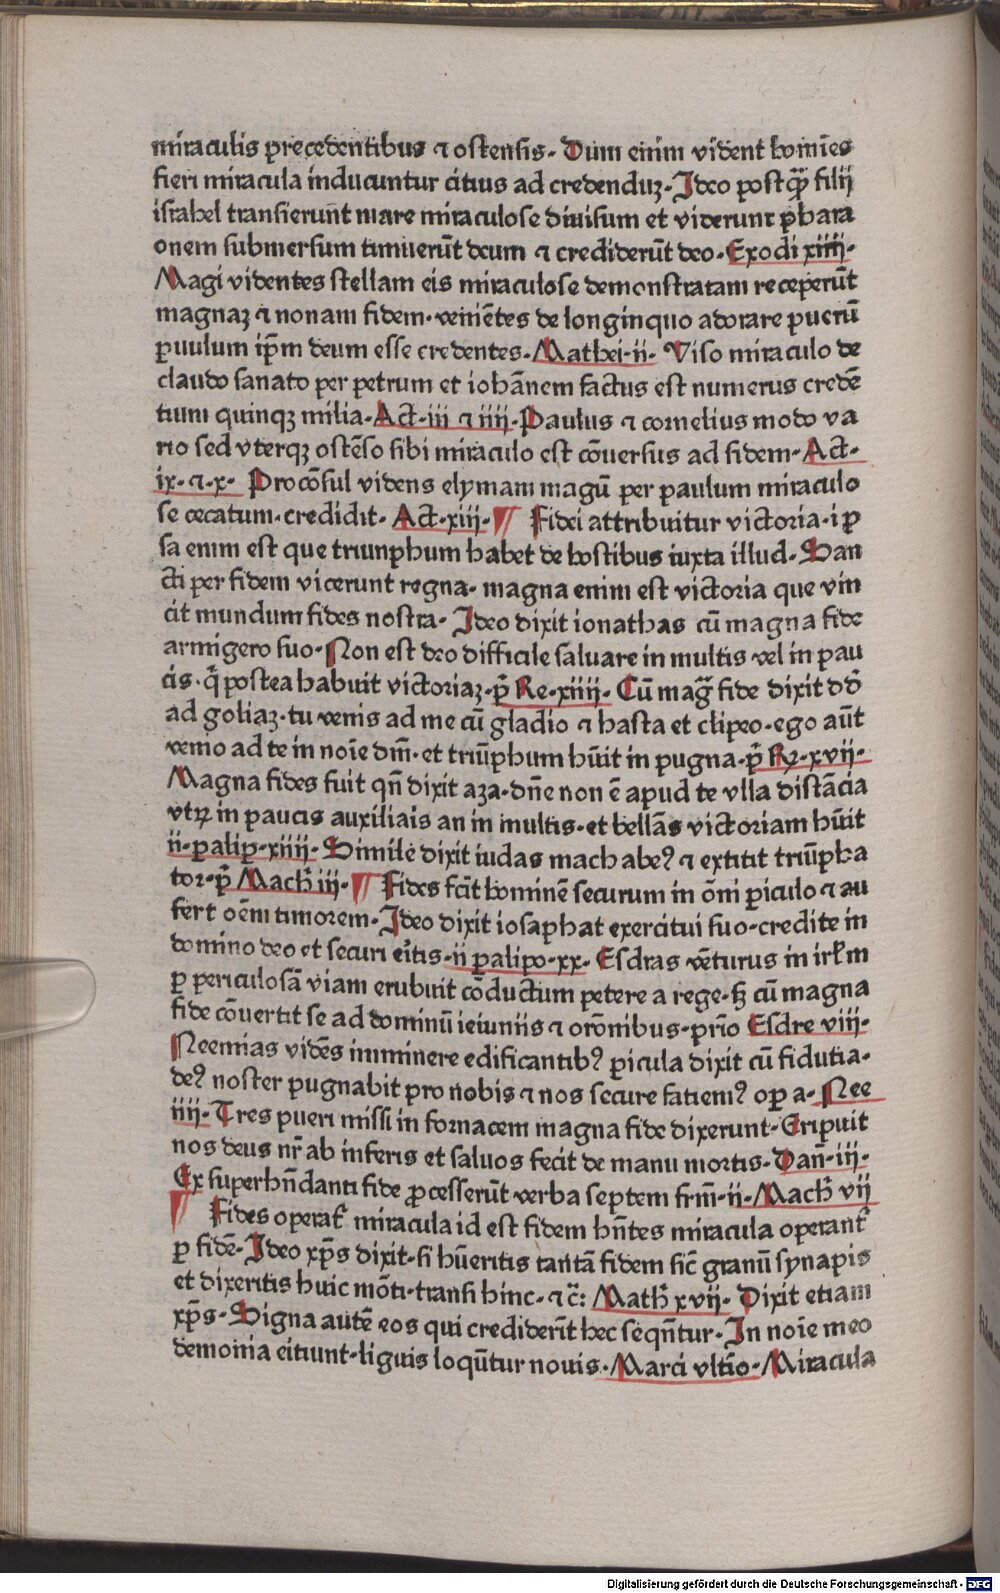 miraculis precedentibus ⁊ ostensis. Dum enim vident homīes
fieri miracula inducuntur citius ad credenduꝫ. Ideo postꝙ̄ filii
israhel transierunt mare miraculose diuisum et viderunt phara
onem submersum timuerūt deum ⁊ crediderūt deo. Exodi xiiii.
Magi videntes stellam eis miraculose demonstratam receperūt
magnaꝫ ⁊ nonam fidem. veniētes de longinquo adorare puerū
ꝑuulum ip̄m deum esse credentes. Mathei.ii. Viso miraculo de
claudo sanato per petrum et iohānem factus est numerus credē
tium quinqꝫ milia. Act.iii ⁊ iiii. Paulus ⁊ cornelius modo va
rio sed vterqꝫ ostēso sibi miraculo est cōuersus ad fidem. Act.
ix.⁊.x. Procōsul videns elymam magū per paulum miraculo
se cecatum. credidit. Act.xiii. ¶ Fidei attribuitur victoria. ip
sa enim est que triunphum habet de hostibus iuxta illud. San
cti per fidem vicerunt regna. magna enim est victoria que vin
cit mundum fides nostra. Ideo dixit ionathas cū magna fide
armigero suo. Non est deo difficile saluare in multis vel in pau
cis. q̄ postea habuit victoriaꝫ. p̄ Re.xiiii. Cū mag̃ fide dixit dd̄
ad goliaꝫ. tu venis ad me cū gladio ⁊ hasta et clipeo. ego aūt
venio ad te in noīe dm̄. et triūphum hūit in pugna. p̄ Rꝫ.xvii.
Magna fides fuit qn̄ dixit aza. dn̄e non ē apud te vlla distācia
vtꝝ in paucis auxiliais an in multis. et bellās victoriam hūit
ii.palip.xiiii. Simile dixit iudas machabeꝰ ⁊ extitit triūpha
tor. p̄ Mach̄ iii. ¶ Fides fcīt hominē securum in ōni ꝑiculo ⁊ au
fert oēm timorem. Ideo dixit iosaphat exercitui suo. credite in
domino deo et securi eītis. ii palipo.xx. Esdras vēturus in irłm
ꝑ periculosā viam erubuit cōductum petere a rege. sꝫ cū magna
fide cōuertit se ad dominū ieiuniis ⁊ orōnibus. prīo Esdre viii.
Neemias vidēs imminere edificantibꝰ ꝑicula dixit cū fidutia.
deꝰ noster pugnabit pro nobis ⁊ nos secure fatiemꝰ opꝑa. Nee
iiii. Tres pueri missi in fornacem magna fide dixerunt. Eripuit
nos deus nr̄ ab inferis et saluos fecit de manu mortis. Dan̄.iii.
Ex superhn̄danti fide ꝓcesserūt verba septem frm̄. ii. Mach̄ vii
¶ Fides operat̄ miracula id est fidem hn̄tes miracula operant̄
ꝑ fidē. Ideo xp̄s dixit. si hūeritis tantā fidem sic̄ granū synapis
et dixeritis huic mōti. transi hinc. ⁊ c̄: Math̄ xvii. Dixit etiam
xp̄s. Signa autē eos qui crediderīt hec seqn̄tur. In noīe meo
demonia eitiunt. liguis loqūtur nouis. Marci vltīo. Miracula
Digitalisierung gefördert durch die Deutsche Forschungsgemeinschaft - DFG